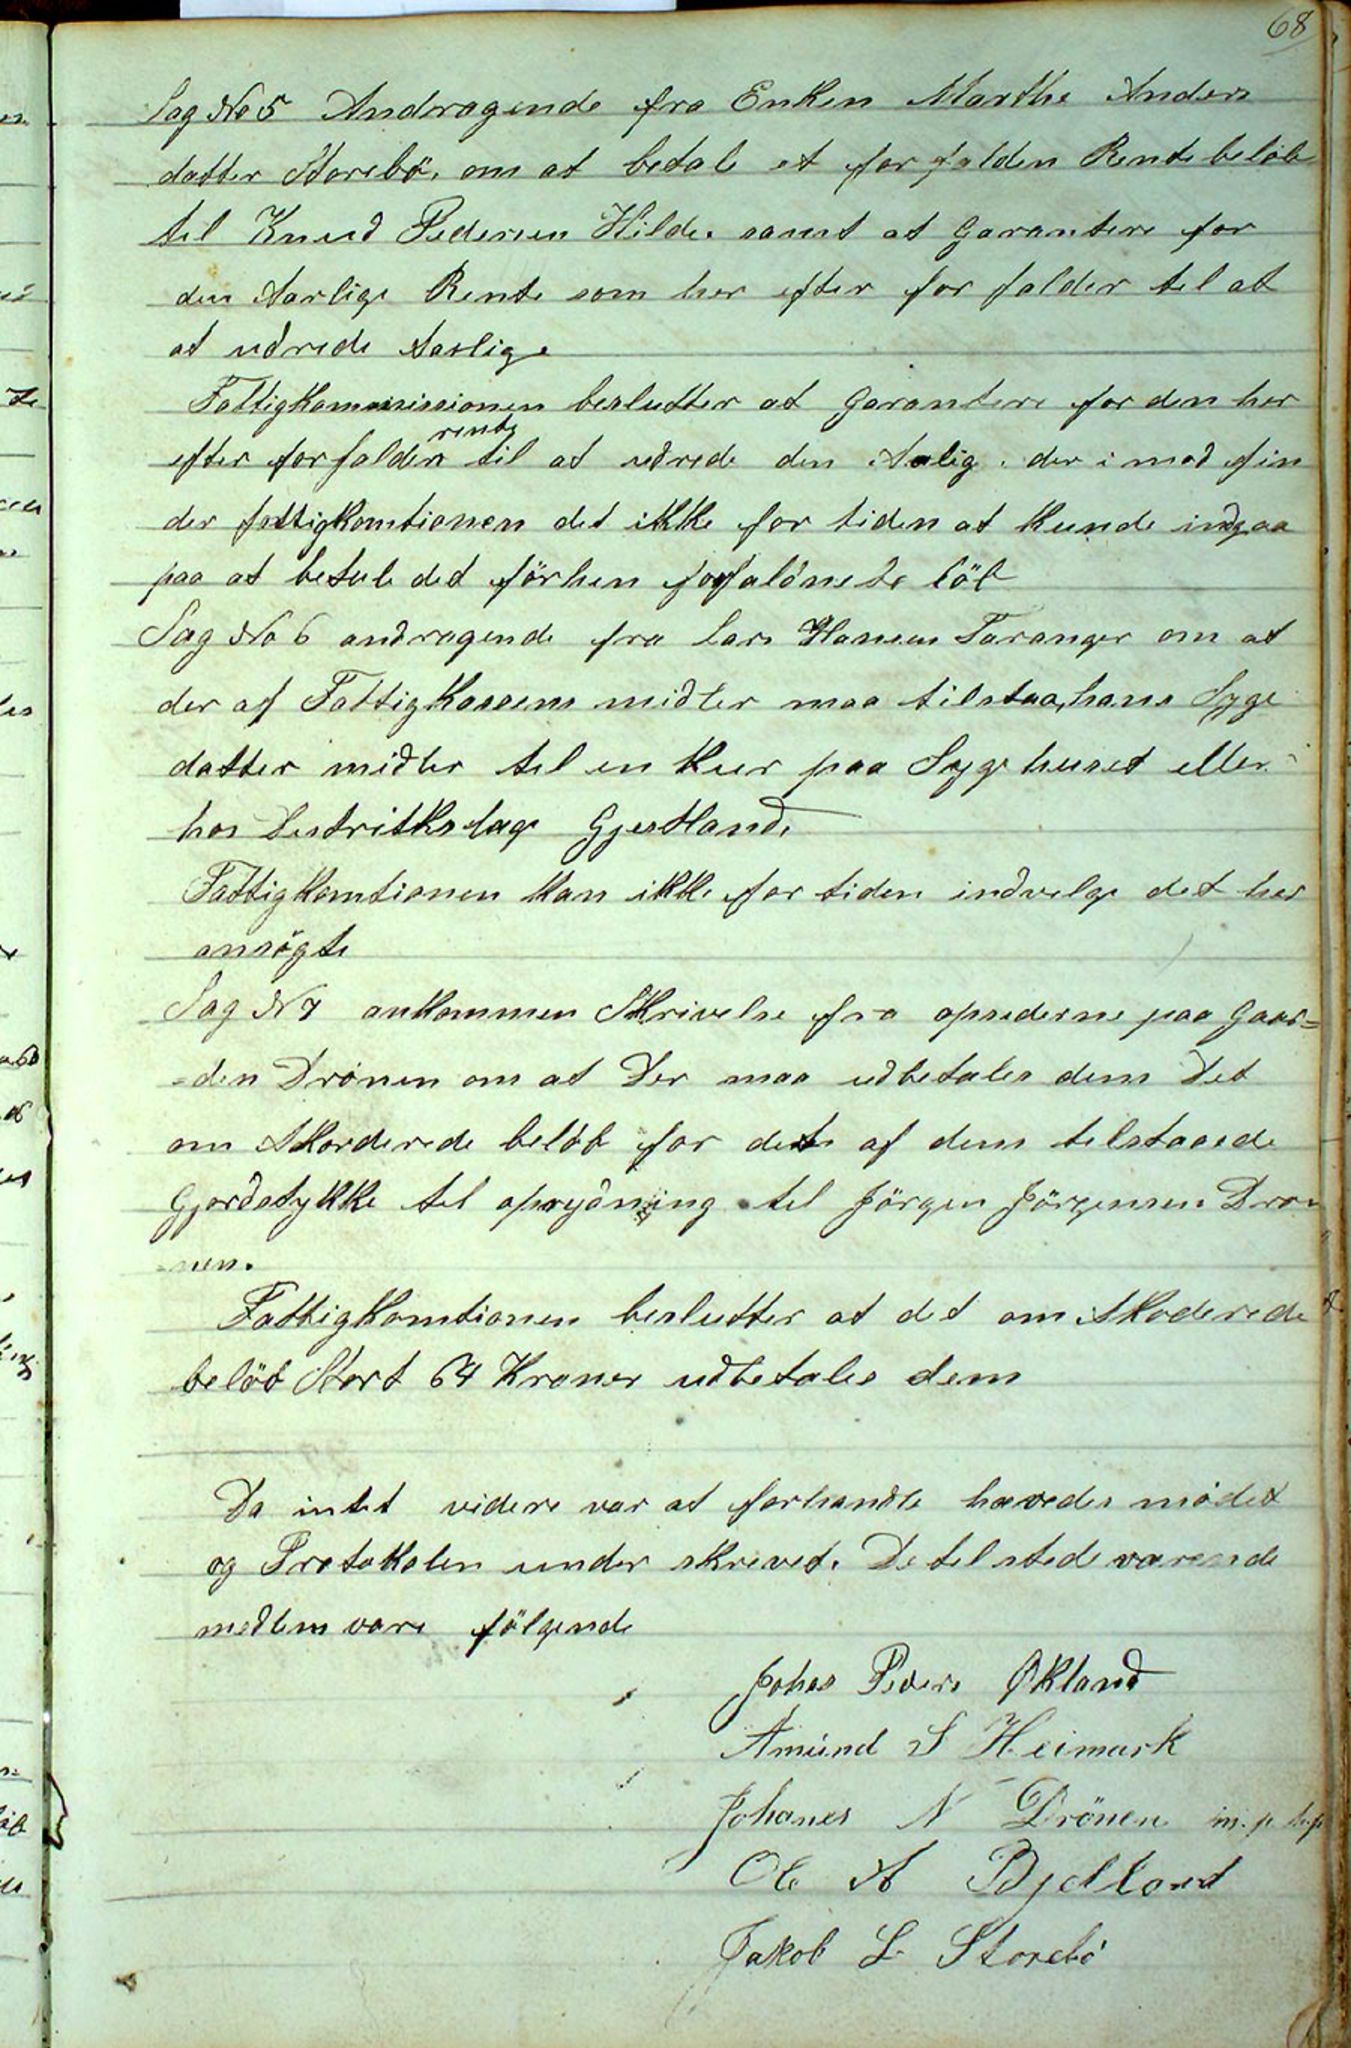 68
Sag No 5 Andragende fra Enken Marthe Anders
datter Storebö, om at betale et for falden Rente beløb
til Knud Pedersen Hilde. samt at Garantere for
den Aarlige Rente som her efter for falder til at
at udrede Aarlige
Fattigkommissionen beslutter at Garantere for den her
rente
efter forfalden til at udrede den Aalig. der imod fin
der fattigkomtionen det ikke for tiden at kunde indgaa
paa at betale det förhen forfaldnebe löb
Sag No 6 andragende fra Lars Hansen Taranger om at
der af Fattigkassens midler maa tilstaa, hans Syge
datter midler til en Kur paa Sygehuset eller
hos Distriktslæge Gjestland.
Fattigkomtionen kan ikke for tiden indvelge det her
ansögte
Sag N 7 ankommen Skrivelse fra opsederne paa Gaar=
=den Drönen om at Der maa udbetales dem Det
om Akorderede beløb for dete af dem tilstaaede
Gjordstykke til oprydning til Jörgen Jörgensen Drö
nen.
Fattigkomtionen beslutter at det om Akoderede
belöb Stort 64 Kroner udbetales dem
Da intet videre var at forhandle hævedes mödet
og Protokolen under skrevet. De tel stede værende
medlem vare fölgende
Johas Peders Økland
Amund S Heimark
Johanes N Drönen m. p. p.
Ole A Bjelland
Jakob L. Storebö